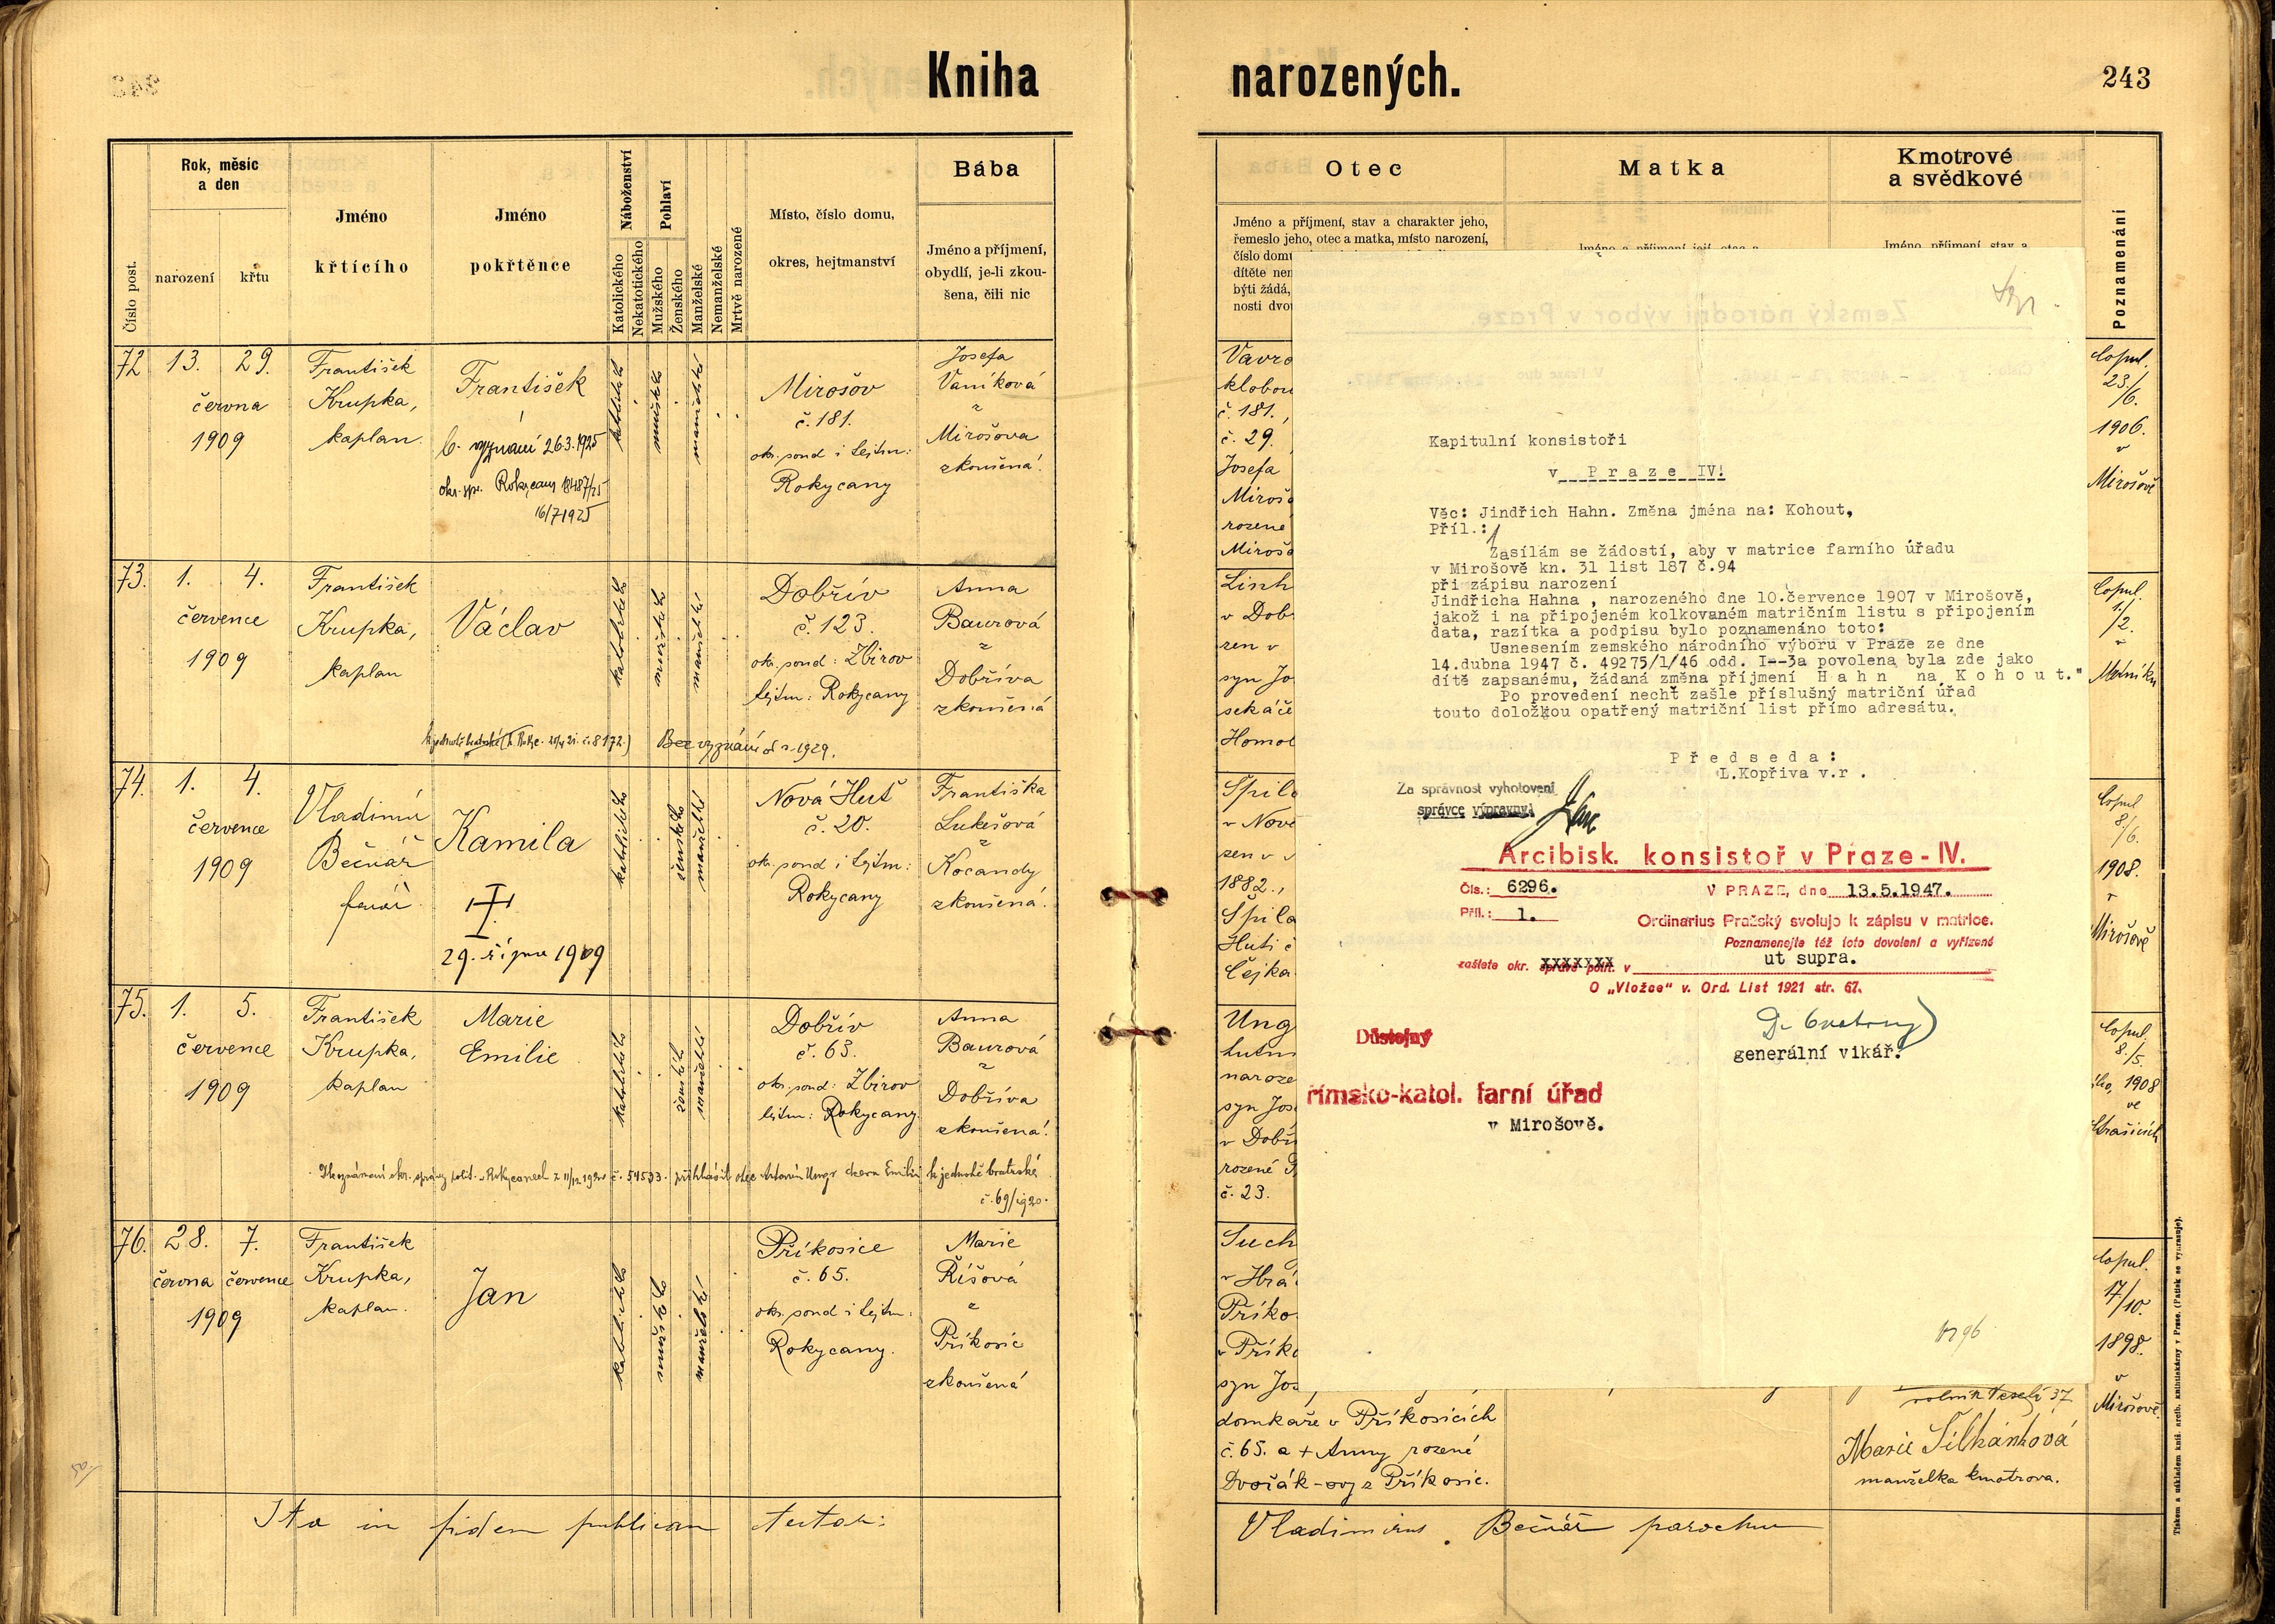 Kniha narozených.
243
Číslo post.
Rok, měsíc
a den
narození
křtu
Jméno
křtícího
Jméno
pokřtěnce
Náboženství
Katolického
Nekatotického
Pohlaví
Mužského
Ženského
Manželské
Nemanželské
Mrtvě narozené
Místo, číslo domu,
okres, hejtmanství
Bába
Jméno a příjmení,
obydlí, je-li zkou-
šena, čili nic
Otec
Jméno a příjmení, stav a charakter jeho,
řemeslo jeho, otec a matka, místo narození,
číslo domu
dítěte
býti žádá,
nosti
Matka
Kmotrové
a svědkové
Jméno, příjmení, stav a
Poznamenání
72 13. 29.
června
1909
František
Krupka,
kaplan.
František
b. vyznání 26.3.1925
okr. spr. Rokycany 18487/25
16/7 1925
katolického
mužského
manželské
Mirošov
č. 181.
okr. soud i hejtm:
Rokycany
Josefa
Vaníková
z
Mirošova
zkoušená.
č. 181.,
č. 29.
Josefa
rozené
Copul.
23/6.
1906.
v
Mirošově
73. 1. 4.
července
1909
František
Krupka,
kaplan
Václav
katolického
mužského
manželské
Dobřív
č. 123.
okr. soud: Zbirov
hejtm: Rokycany
Anna
Baurová
z
Dobříva
zkoušená
Bez vyznání od r. 1929.
v Dob
syn Jo
Copul.
1/2.
74. 1. 4.
července
1909
Vladimír
Bečvář
farář
Kamila
29. října 1909
katolického
ženského
manželské
Nová Huť
č. 20.
okr. soud i hejtm:
Rokycany
Františka
Lukešová
z
Kocandy
zkoušená.
v Nové
1882.,
Huti č
Čejka
Copul
8/6.
1908.
v
Mirošově
75. 1. 5.
července
1909
František
Krupka,
kaplan
Marie
Emilie
katolického
ženského
manželské
Dobřív
č. 63.
okr. soud: Zbirov
hejtm: Rokycany.
Anna
Baurová
z
Dobříva
zkoušená.
přihlásil otec Antonín Ungr dceru Emilii k jednotě bratrské
č. 69/1920.
Ung
syn Jos
v Dobř
rozené
č. 23.
Copul.
8./5.
1908
ve
Strašicích
76. 28. 7.
června července
1909
František
Krupka,
kaplan.
Jan
katolického
mužského
manželské
Příkosice
č. 65.
okr. soud i hejtm:
Rokycany.
Marie
Říšová
z
Příkosic
zkoušená
Such
v Hrá
Příko
v Příko
syn Jos
domkaře v Příkosicích
č. 65. a + Anny rozené
Dvořák-ovy z Příkosic.
37
Marie Šilhánková
manželka kmotrova.
Copul.
17/10.
1898.
v
Mirošově.
Ita in fidem publicam testor:
Vladimirus Bečvář parochus
Kapitulní konsistoři
v Praze IV.
Věc: Jindřich Hahn. Změna jména na: Kohout,
Příl.: 1
Zasílám se žádostí, aby v matrice farního úřadu
v Mirošově kn. 31 list 187 č.94
při zápisu narození
Jindřicha Hahna , narozeného dne 10.července 1907 v Mirošově,
jakož i na připojeném kolkovaném matričním listu s připojením
data, razítka a podpisu bylo poznamenáno toto:
Usnesením zemského národního výboru v Praze ze dne
14.dubna 1947 č. 49275/1/46 odd. I--3a povolena byla zde jako
dítě zapsanému, žádaná změna příjmení H a h n na K o h o u t."
Po provedení nechť zašle příslušný matriční úřad
touto doložkou opatřený matriční list přímo adresátu.
P ř e d s e d a :
L.Kopřiva v.r .
Za správnost vyhotovení
správce výpravny:
Arcibisk. konsistoř v Praze - IV.
Čís.: 6296. V PRAZE, dne 13.5.1947.
Příl.: 1. Ordinarius Pražský svoluje k zápisu v matrice.
Poznamenejte též toto dovolení a vyřízené
zašlete okr. správě polit. v ut supra.
O „Vložce“ v. Ord. List 1921 str. 67.
Důstojný
generální vikář.
římsko-katol. farní úřad
v Mirošově.
Tiskem a nákladem kníž. arcib. knihtiskárny v Praze. (Patisk se vyhrazuje).